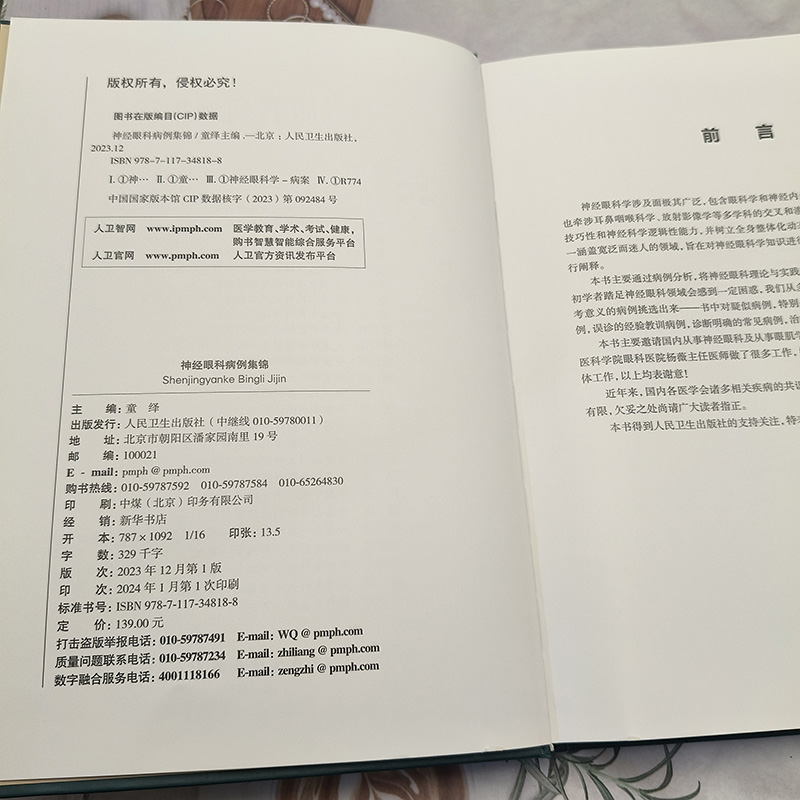 版权所有，侵权必究！
图书在版编目(CIP)数据
神经眼科病例集锦 / 童绎主编 .—北京：人民卫生出版社，
2023.12
ISBN 978-7-117-34818-8
Ⅰ.①神… Ⅱ.①童… Ⅲ.①神经眼科学－病案 Ⅳ.①R774
中国国家版本馆 CIP 数据核字（2023）第 092484 号
人卫智网 www.ipmph.com 医学教育、学术、考试、健康，
购书智慧智能综合服务平台
人卫官网 www.pmph.com 人卫官方资讯发布平台
神经眼科病例集锦
Shenjingyanke Bingli Jijin
主 编：童 绎
出版发行：人民卫生出版社（中继线 010-59780011）
地 址：北京市朝阳区潘家园南里 19 号
邮 编：100021
E - mail：pmph @ pmph.com
购书热线：010-59787592 010-59787584 010-65264830
印 刷：中煤（北京）印务有限公司
经 销：新华书店
开 本：787×1092 1/16 印张：13.5
字 数：329 千字
版 次：2023 年 12 月第 1 版
印 次：2024 年 1 月第 1 次印刷
标准书号：ISBN 978-7-117-34818-8
定 价：139.00 元
打击盗版举报电话：010-59787491 E-mail：WQ @ pmph.com
质量问题联系电话：010-59787234 E-mail：zhiliang @ pmph.com
数字融合服务电话：4001118166 E-mail：zengzhi @ pmph.com
前 言
神经眼科学涉及面极其广泛，包含眼科学和神经内
也牵涉耳鼻咽喉科学、放射影像学等多学科的交叉和
技巧性和神经科学逻辑性能力，并树立全身整体化动
一涵盖宽泛而迷人的领域，旨在对神经眼科学知识进
行阐释。
本书主要通过病例分析，将神经眼科理论与实践
初学者踏足神经眼科领域会感到一定困惑，我们从
考意义的病例挑选出来——书中对疑似病例，特别
例，误诊的经验教训病例，诊断明确的常见病例，治
本书主要邀请国内从事神经眼科及从事眼肌学
医科学院眼科医院杨薇主任医师做了很多工作，
体工作，以上均表谢意！
近年来，国内各医学会诸多相关疾病的共识
有限，欠妥之处尚请广大读者指正。
本书得到人民卫生出版社的支持关注，特